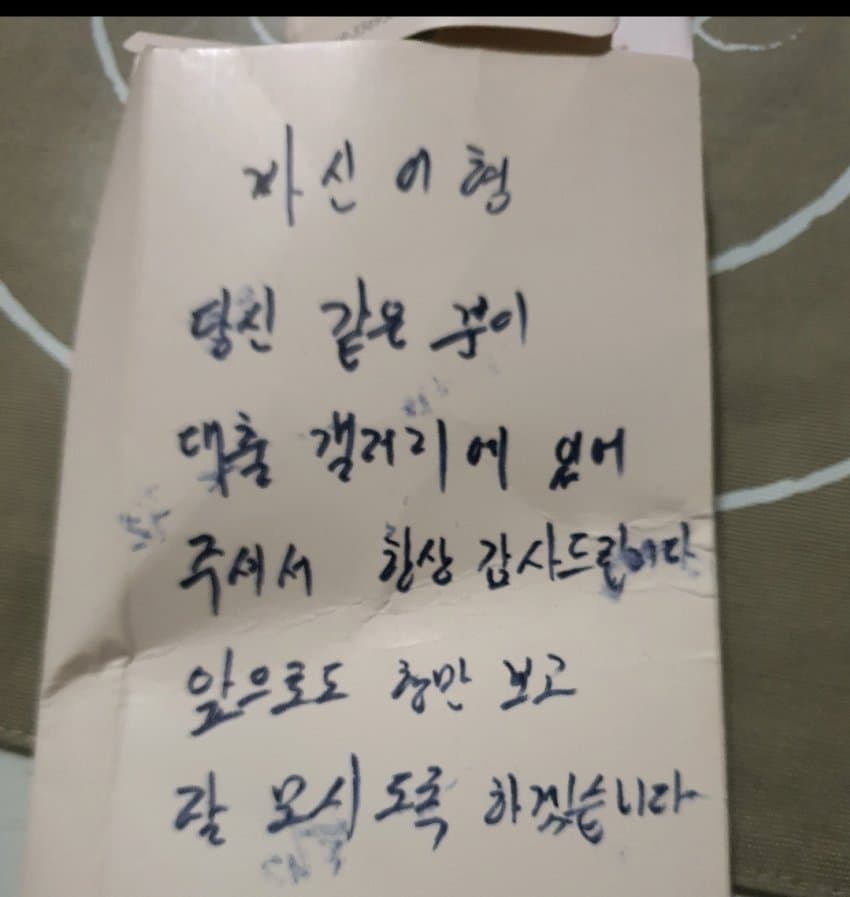 자신이형
당신 같은 분이
대출 갤러리에 있어
주셔서 항상 감사드립니다
앞으로도 형만 보고
잘 모시도록 하겠습니다